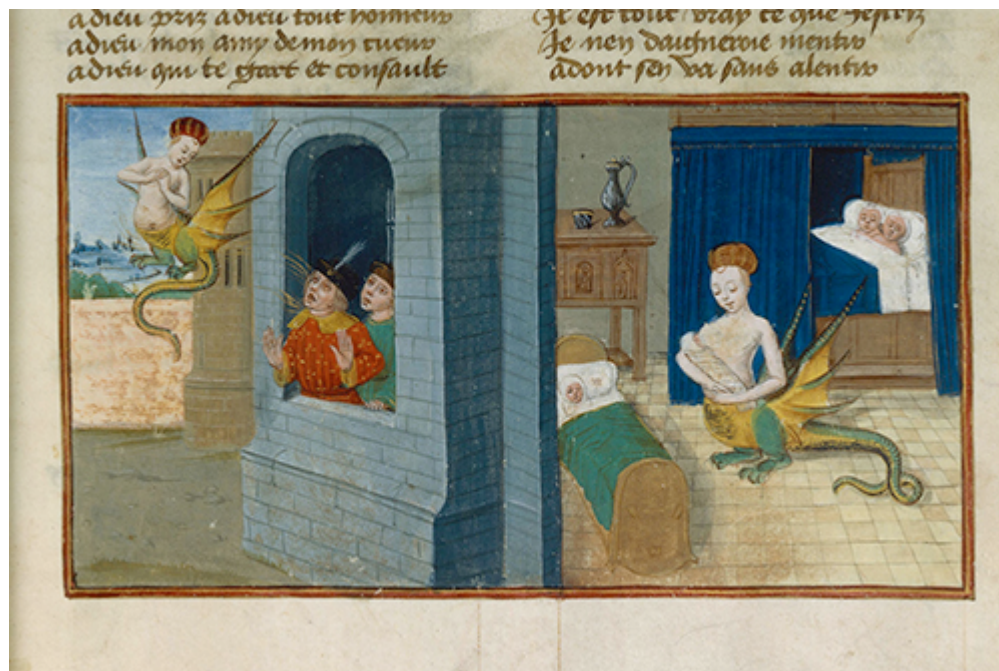 adieu priz adieu tout honneur
adieu mon amy de mon cueur
adieu qui te gart et consault
Il est tout vray ce que Jescriz
Je nen daigneroie mentir
adont sen va sans alentir